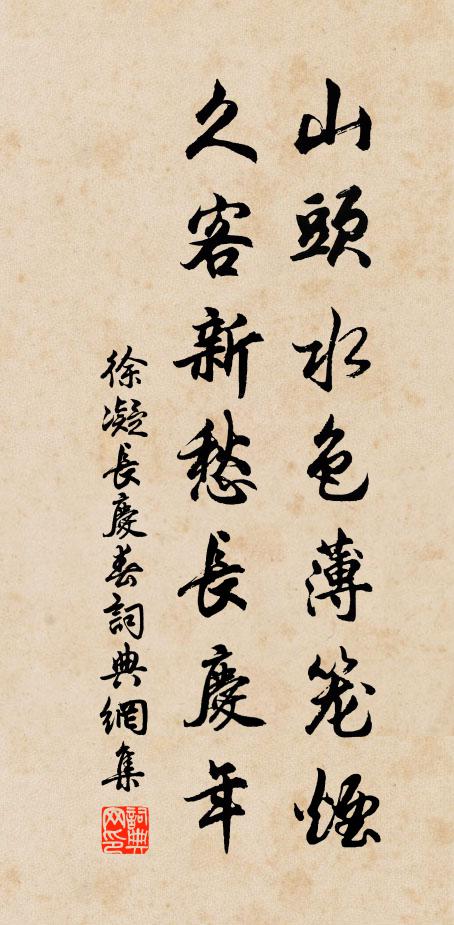 山頭水色薄笼煙
久客新愁長慶年
徐凝長慶春詞典網集
詞典網印